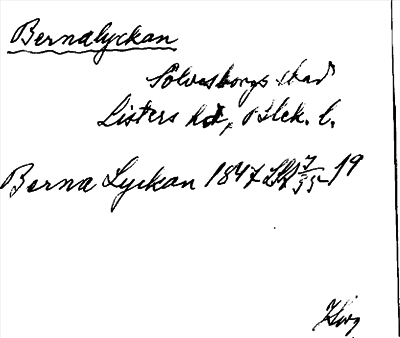 Bernalyckan
Sölvesborgs stad
Listers hd, Blek. l.
Berna Lyckan 1847 7/35 19